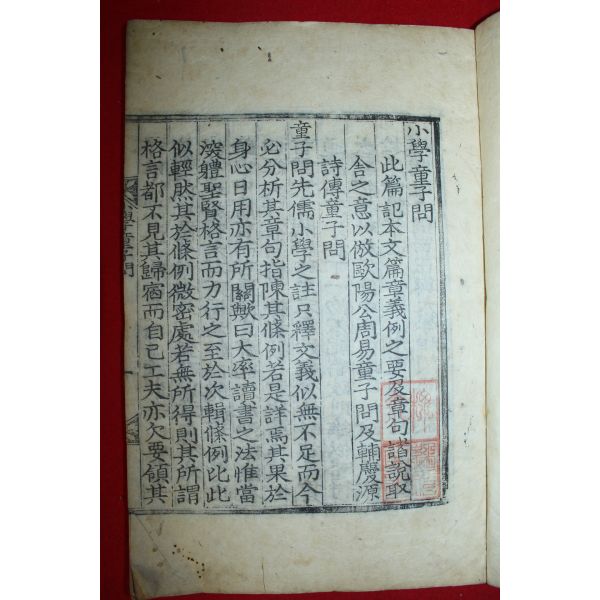 小學童子問
此篇記本文篇章義例之要及章句諸說取
舍之意以倣歐陽公周易童子問及輔慶源
詩傳童子問
童子問先儒小學之註只釋文義似無不足而今
必分析其章句指陳其條例若是詳焉其果於
身心日用亦有所關歟曰大率讀書之法惟當
深體聖賢格言而力行之至於次輯條例比此
似輕然其於條例微密處若無所得則其所謂
格言都不見其歸宿而自己工夫亦欠要領其
學童子問